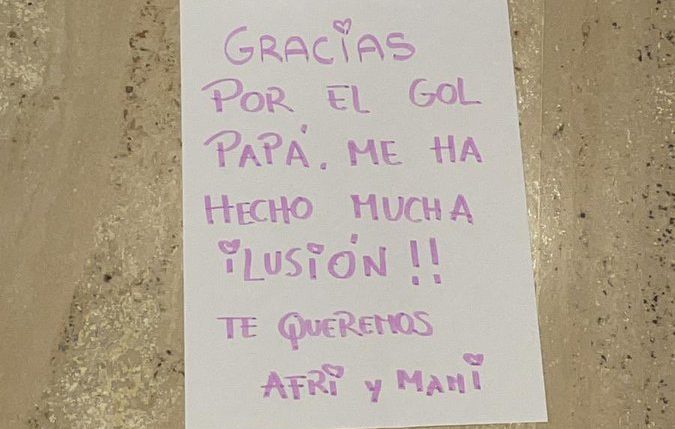 GRACIAS
POR EL GOL
PAPÁ. ME HA
HECHO MUCHA
iLUSIÓN!!
TE QUEREMOS
AFRi y MAMi